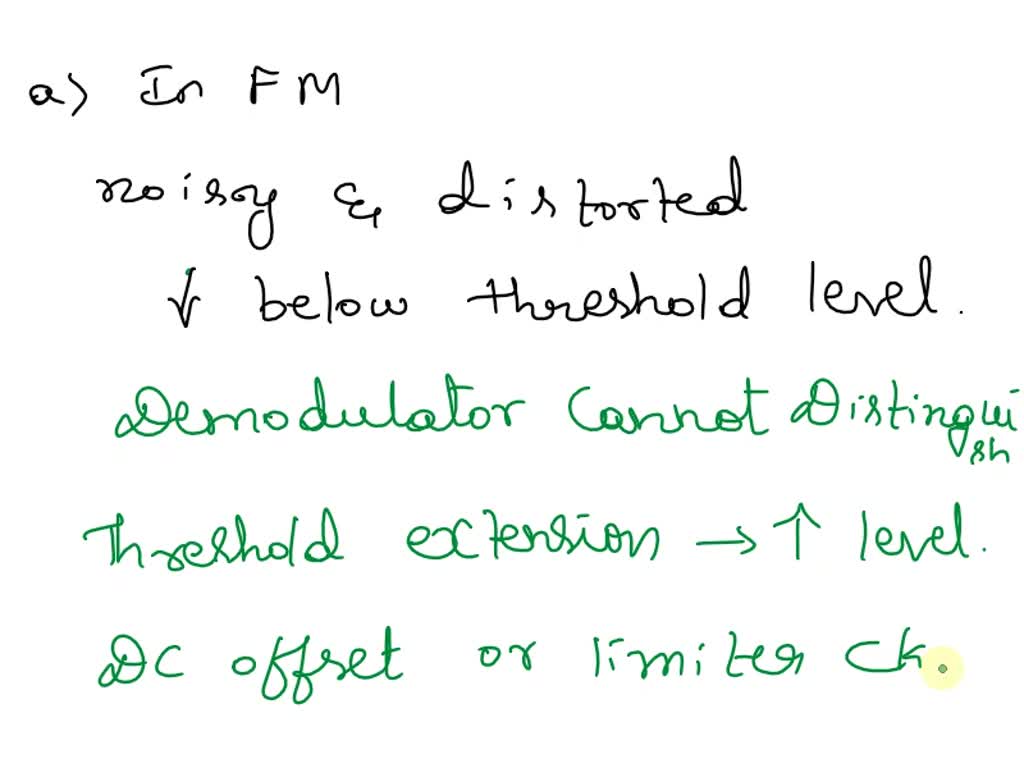 a) In FM
noisy & distorted
↓ below threshold level.
Demodulator Cannot Distingui
sh
Threshold extension → ↑ level.
DC offset or limiter Ck.